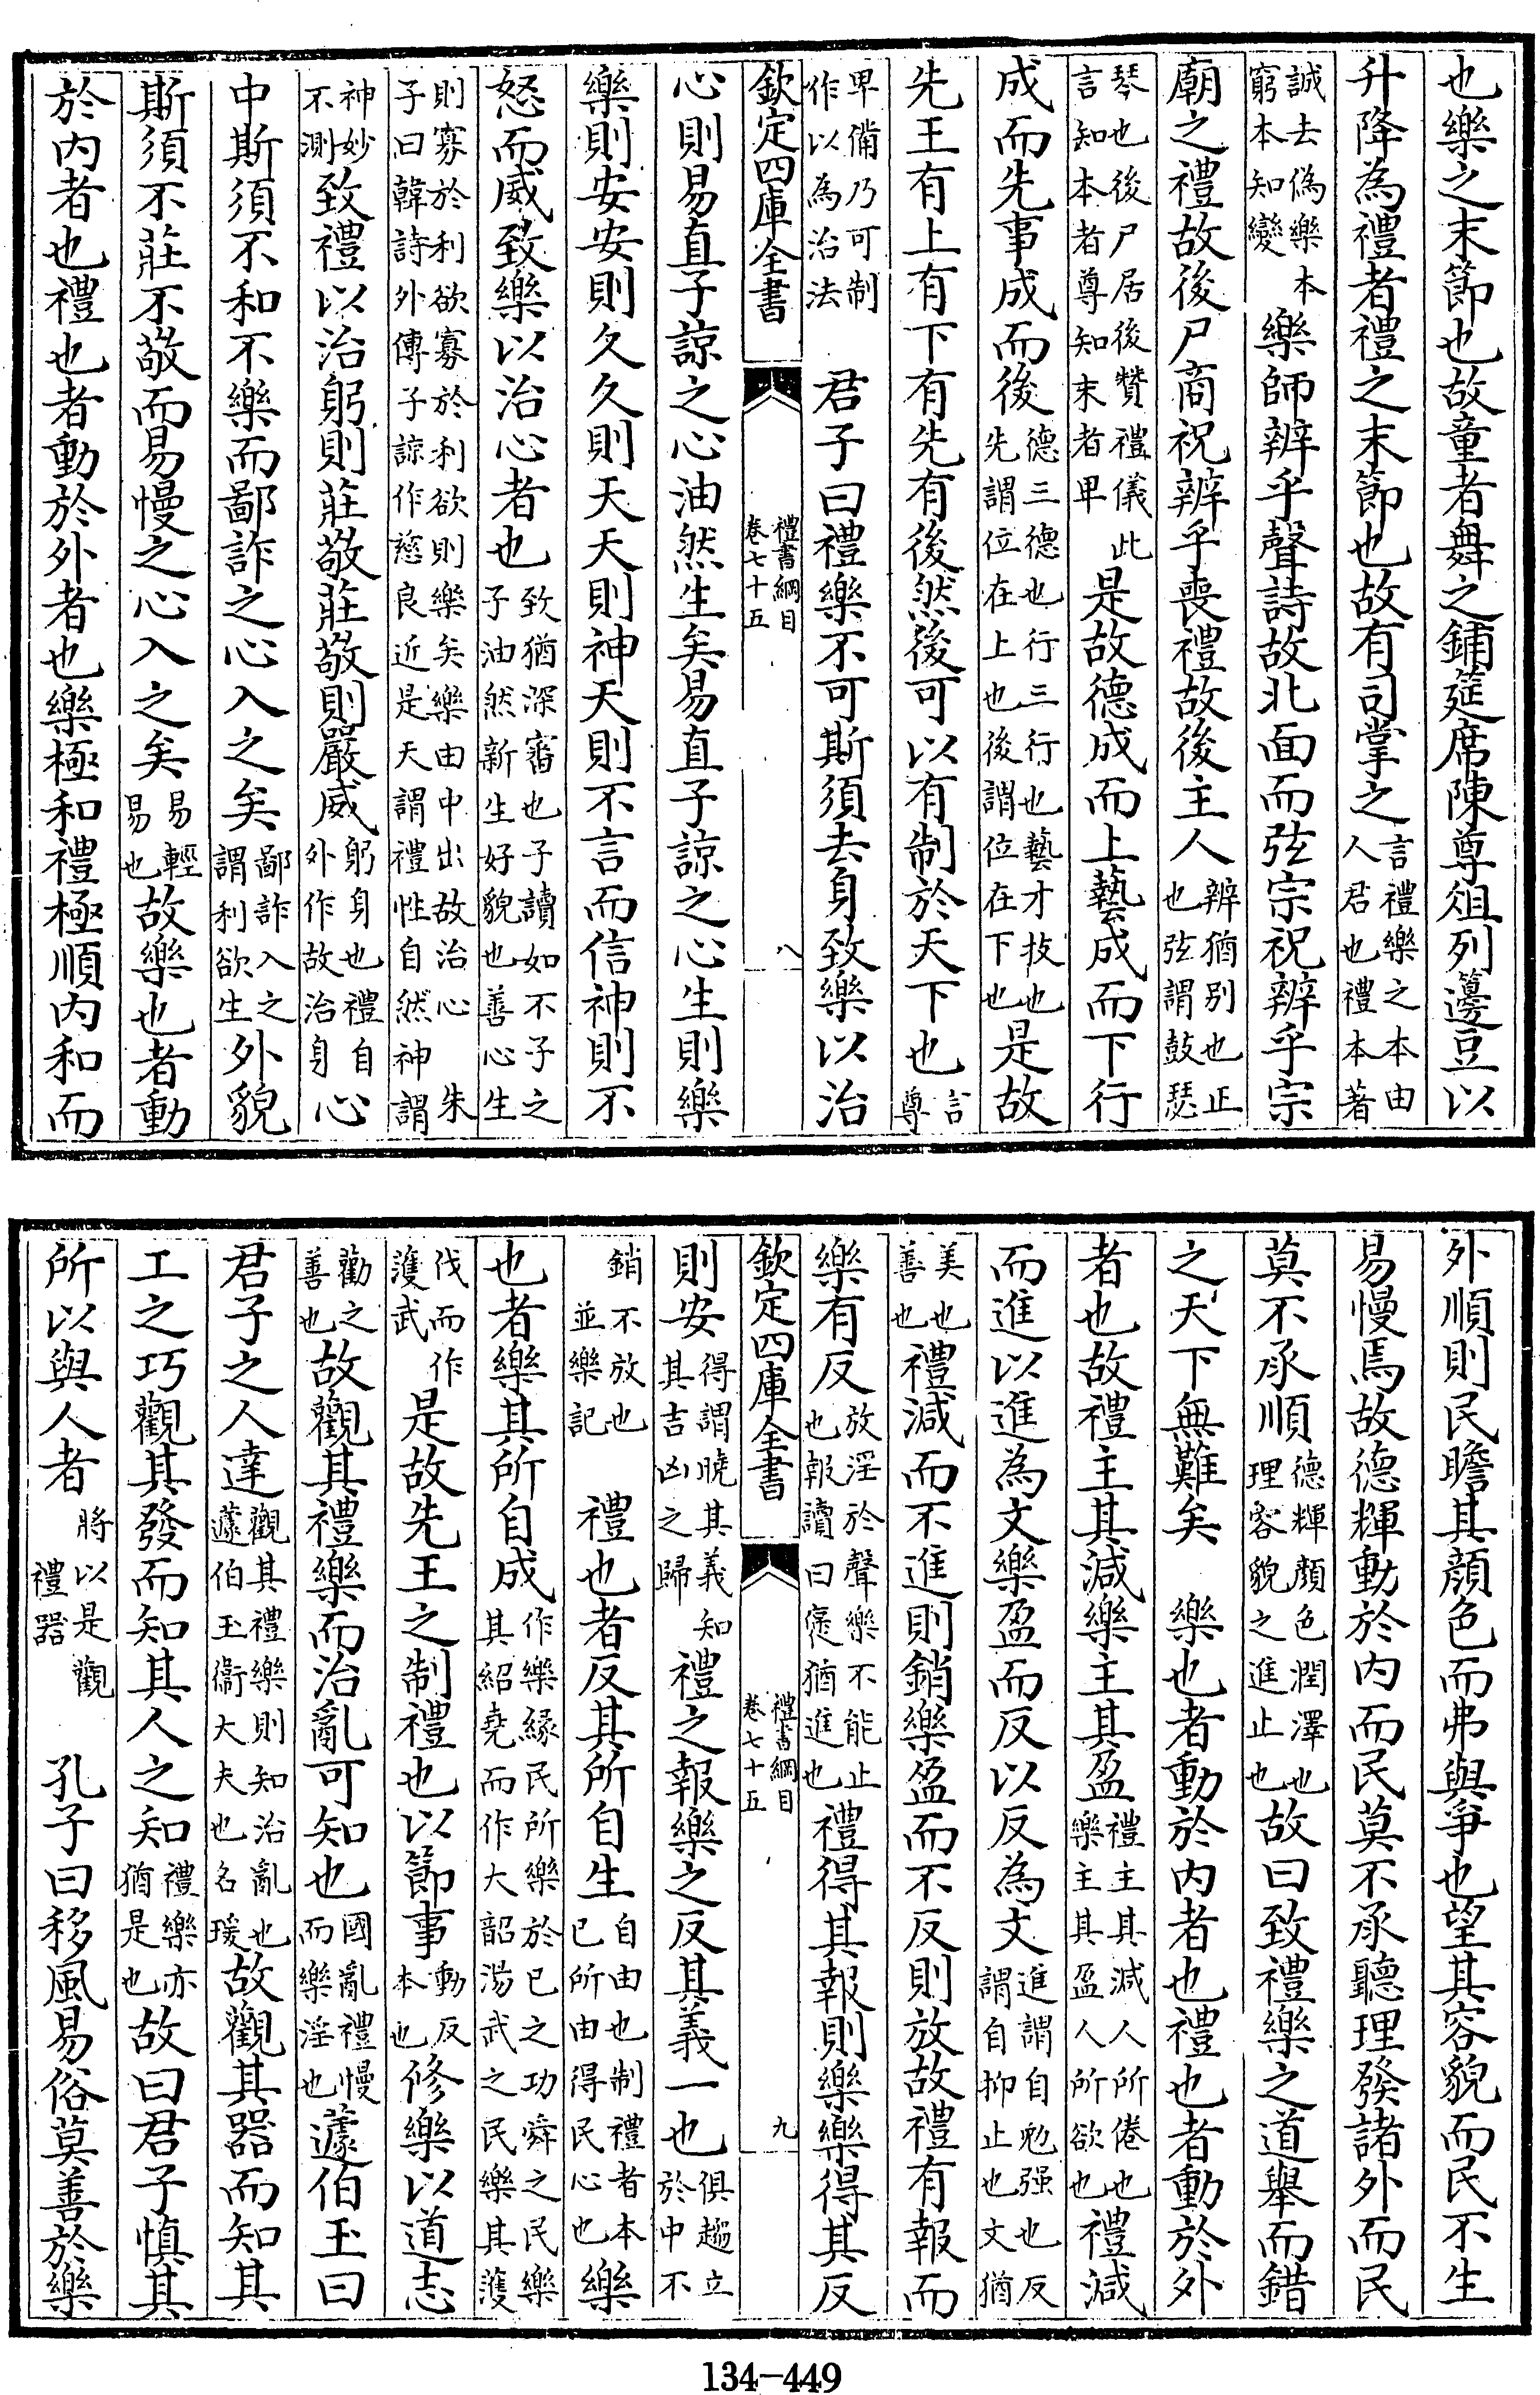 也樂之末節也故童者舞之鋪筵席陳尊俎列籩豆以
升降為禮者禮之末節也故有司掌之言禮樂之本由人君也禮本著
誠去偽樂本窮本知變樂師辨乎聲詩故北面而弦宗祝辨乎宗
廟之禮故後尸商祝辨乎喪禮故後主人辨猶别也正也弦謂鼓瑟
琴也後尸居後贊禮儀此言知本者尊知末者卑是故德成而上藝成而下行
成而先事成而後德三德也行三行也藝才技也先謂位在上也後謂位在下也是故
先王有上有下有先有後然後可以有制於天下也言尊
卑備乃可制作以為治法君子曰禮樂不可斯須去身致樂以治
欽定四庫全書 禮書綱目 卷七十五 八
心則易直子諒之心油然生矣易直子諒之心生則樂
樂則安安則久久則天天則神天則不言而信神則不
怒而威致樂以治心者也致猶深審也子讀如不子之子油然新生好貌也善心生
則寡於利欲寡於利欲則樂矣樂由中出故治心 朱子曰韓詩外傳子諒作慈良近是天謂禮性自然神謂
神妙不測致禮以治躬則莊敬莊敬則嚴威躬身也禮自外作故治身心
中斯須不和不樂而鄙詐之心入之矣鄙詐入之謂利欲生外貌
斯須不莊不敬而易慢之心入之矣易輕易也故樂也者動
於内者也禮也者動於外者也樂極和禮極順内和而
外順則民瞻其顔色而弗與爭也望其容貌而民不生
易慢焉故德輝動於内而民莫不承聽理發諸外而民
莫不承順德輝顔色潤澤也理容貌之進止也故曰致禮樂之道舉而錯
之天下無難矣 樂也者動於内者也禮也者動於外
者也故禮主其減樂主其盈禮主其減人所倦也樂主其盈人所欲也禮減
而進以進為文樂盈而反以反為文進謂自勉强也反謂自抑止也文猶
美也善也禮減而不進則銷樂盈而不反則放故禮有報而
樂有反放淫於聲樂不能止也報讀曰褒猶進也禮得其報則樂樂得其反
欽定四庫全書 禮書綱目 卷七十五 九
則安得謂曉其義知其吉凶之歸禮之報樂之反其義一也俱趨立於中不
銷不放也並樂記禮也者反其所自生自由也制禮者本已所由得民心也樂
也者樂其所自成作樂緣民所樂於已之功舜之民樂其紹堯而作大韶湯武之民樂其濩
伐而作濩武是故先王之制禮也以節事動反本也修樂以道志
勸之善也故觀其禮樂而治亂可知也國亂禮慢而樂淫也蘧伯玉曰
君子之人達觀其禮樂則知治亂也蘧伯玉衞大夫也名瑗故觀其器而知其
工之巧觀其發而知其人之知禮樂亦猶是也故曰君子慎其
所以與人者將以是觀禮器 孔子曰移風易俗莫善於樂
134-449